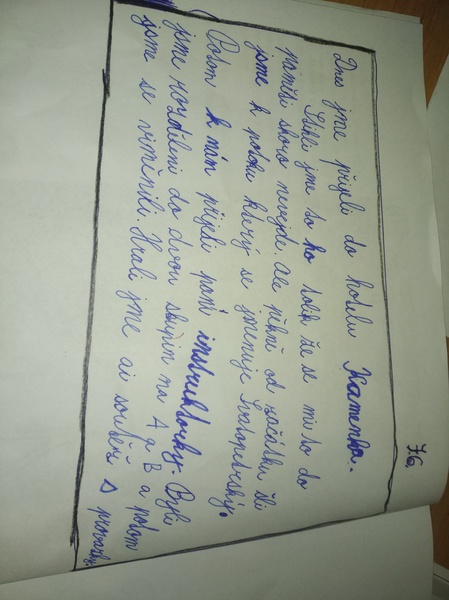 7.6.
Dnes jsme přijeli do hotelu Kamenka.
Užili jsme to ho tolik že se mi to do
paměti skoro nevejde. Ale pěkně od začátku šli
jsme k potoku který se jmenuje Svatopetrský.
Potom k nám přijeli paní instruktorky. Byli
jsme rozděleni do dvou skupin na A a B a potom
jsme se vyměnili. Hrali jsme ai soutěž s provázky.